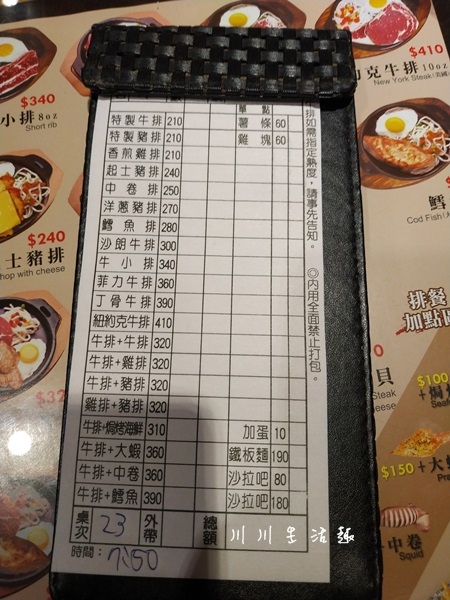 單點
特製牛排 210 薯條 60
特製豬排 210 雞塊 60
香煎雞排 210
起士豬排 240
中卷排 250
洋蔥豬排 270
鱈魚排 280
沙朗牛排 300
牛小排 340
菲力牛排 360
丁骨牛排 390
紐約克牛排 410
牛排+牛排 320
牛排+雞排 320
牛排+豬排 320
雞排+豬排 320
牛排+焗烤海鮮 310 加蛋 10
牛排+大蝦 360 鐵板麵 190
牛排+中卷 360 沙拉吧 80
牛排+鱈魚 390 沙拉吧 180
桌次 23 外帶 總額
時間：
排如需指定熟度，請事先告知。
◎內用全面禁止打包。
川川生活趣
$340
小排 8oz
Short rib
$240
士豬排
hop with cheese
$410
克牛排 10oz
New York Steak
鱈
Cod Fish
排餐
加點
貝
Steak
$100
+焗
$150 +大
中卷
Squid